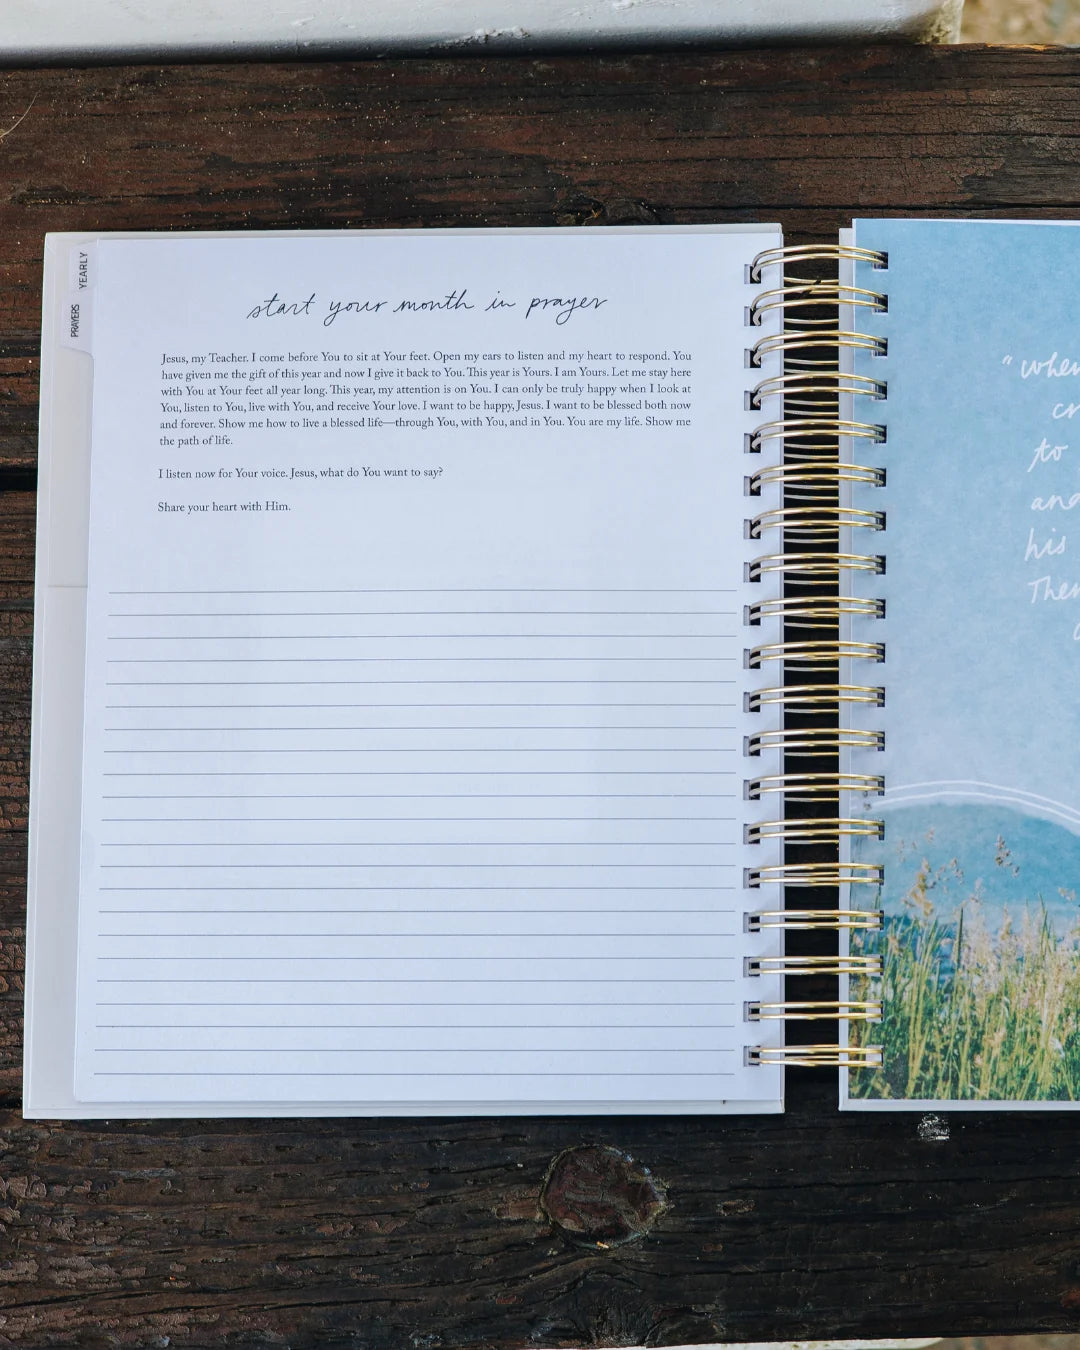 YEARLY
PRAYERS
start your month in prayer
Jesus, my Teacher. I come before You to sit at Your feet. Open my ears to listen and my heart to respond. You
have given me the gift of this year and now I give it back to You. This year is Yours. I am Yours. Let me stay here
with You at Your feet all year long. This year, my attention is on You. I can only be truly happy when I look at
You, listen to You, live with You, and receive Your love. I want to be happy, Jesus. I want to be blessed both now
and forever. Show me how to live a blessed life—through You, with You, and in You. You are my life. Show me
the path of life.
I listen now for Your voice. Jesus, what do You want to say?
Share your heart with Him.
"when
cr
to
and
his
Then